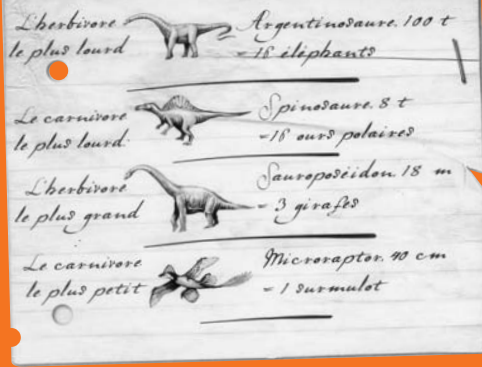 L'herbivore
le plus lourd
Argentinosaure. 100 t
= 16 éléphants
Le carnivore
le plus lourd.
Spinosaure. 8 t
=16 ours polaires
L'herbivore
le plus grand
Sauroposéidon. 18 m
= 3 girafes
Le carnivore
le plus petit
Microraptor. 40 cm
= 1 surmulot